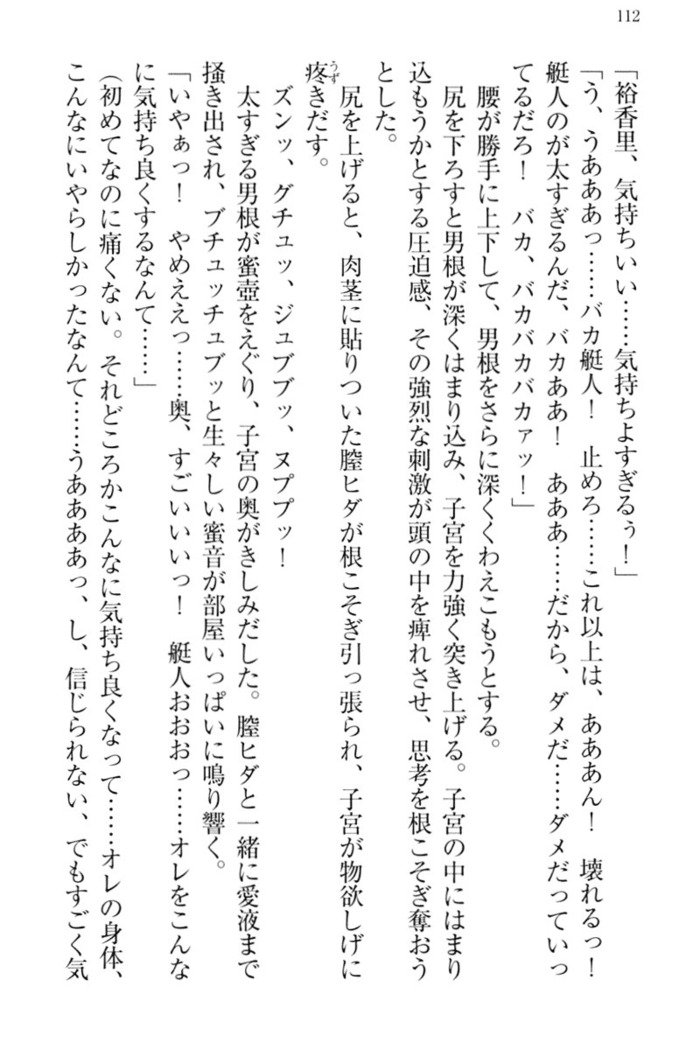 112
「裕香里、気持ちいい……気持ちよすぎるぅ！」
「う、うあああっ……バカ艇人！　止めろ……これ以上は、あああん！　壊れるっ！
艇人のが太すぎるんだ、バカああ！　あああ……だから、ダメだ……ダメだっていっ
てるだろ！　バカ、バカバカバカァッ！」
　腰が勝手に上下して、男根をさらに深くくわえこもうとする。
　尻を下ろすと男根が深くはまり込み、子宮を力強く突き上げる。子宮の中にはまり
込もうかとする圧迫感、その強烈な刺激が頭の中を痺れさせ、思考を根こそぎ奪おう
とした。
　尻を上げると、肉茎に貼りついた膣ヒダが根こそぎ引っ張られ、子宮が物欲しげに
疼うずきだす。
　ズンッ、グチュッ、ジュブブッ、ヌププッ！
　太すぎる男根が蜜壺をえぐり、子宮の奥がきしみだした。膣ヒダと一緒に愛液まで
掻き出され、ブチュッチュブッと生々しい蜜音が部屋いっぱいに鳴り響く。
「いやぁっ！　やめええっ……奥、すごいいいっ！　艇人おおおっ……オレをこんな
に気持ち良くするなんて……」
（初めてなのに痛くない。それどころかこんなに気持ち良くなって……オレの身体、
こんなにいやらしかったなんて……うああああっ、し、信じられない、でもすごく気